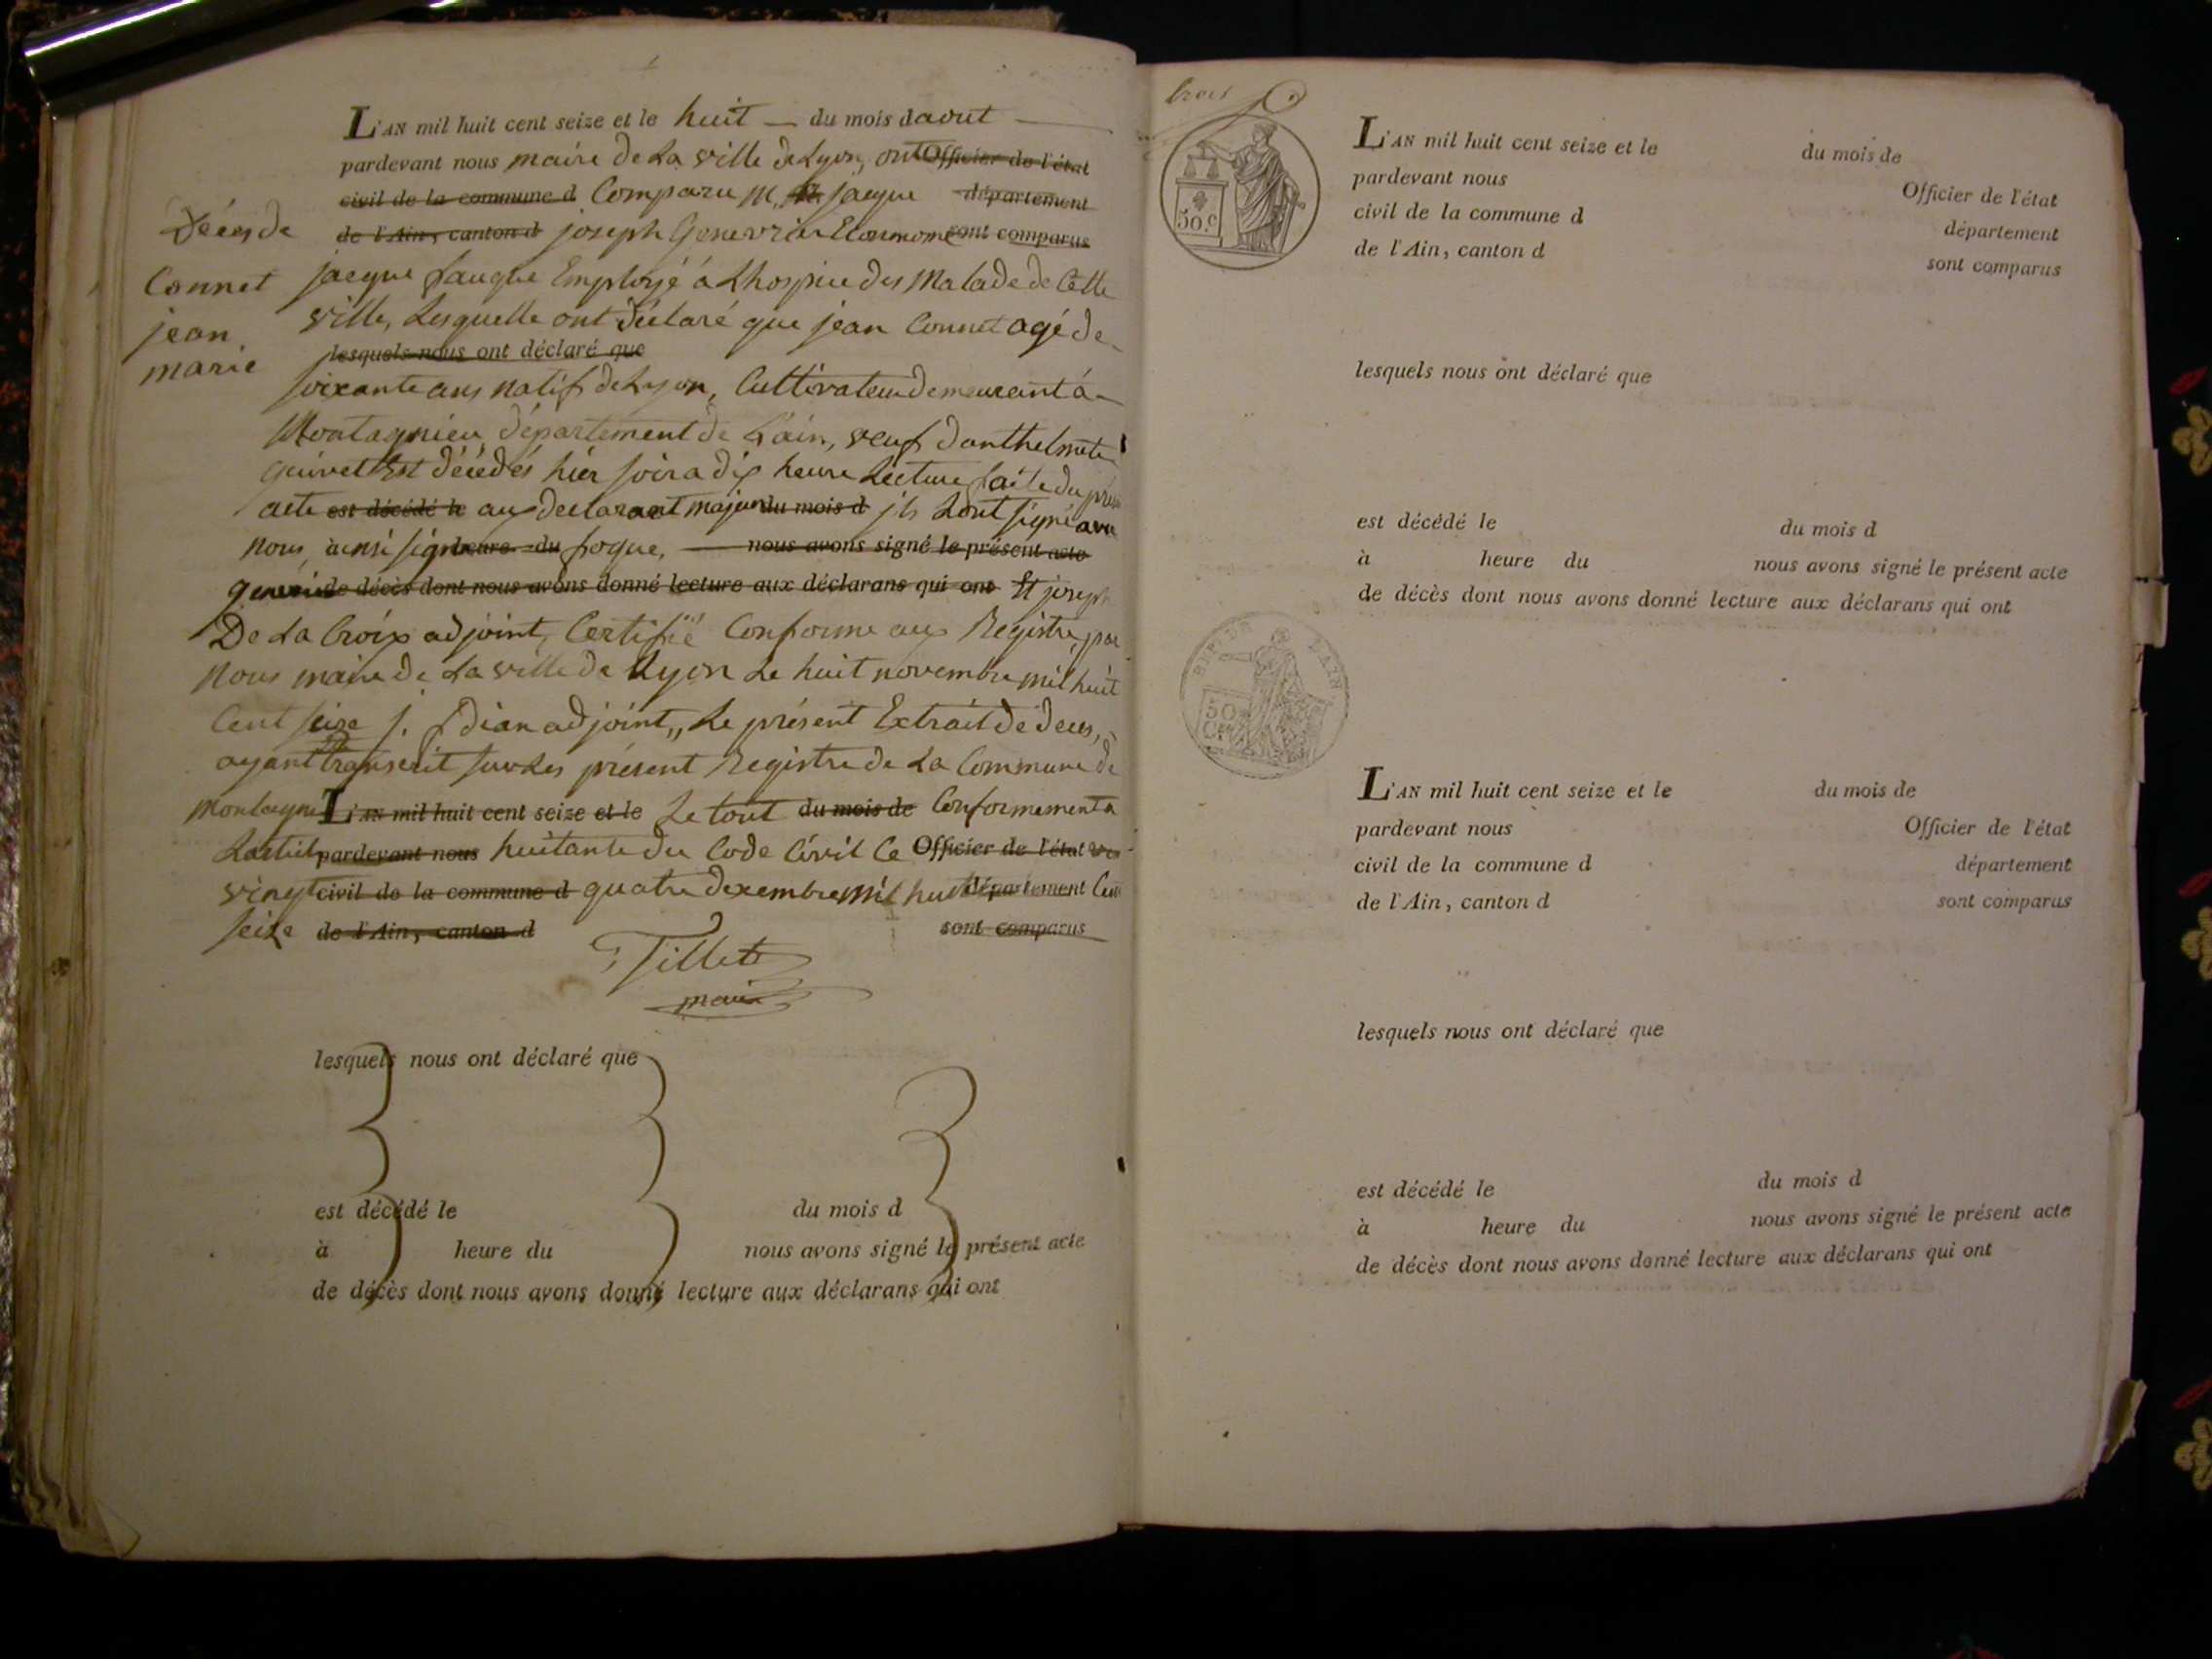 L'AN mil huit cent seize et le huit — du mois daout —
pardevant nous maire de La ville de Lyon, ont Officier de l'état
civil de la commune d Comparu M. jacque département
de l'Ain, canton d joseph Genevrier Econnome sont comparus
jacque fauque Employé á Lhospice des Malade de Cette
ville, Lesquelle ont déclaré que jean Connet agé de
lesquels nous ont déclaré que
soixante ans natif de Lyon, Cultivateur demeurant á
Montagnieu département de L'ain, veuf d'anthelmete
quivet Est décédés hier soir a dix heure Lecture faite du présent
acte est décédé le aux declarant majeur du mois d ils Lont signé avec
nous, ainsi signé heure du foque, — nous avons signé le présent acte
genevrier de décès dont nous avons donné lecture aux déclarans qui ont Et joseph
De La Croix adjoint, Certifié Conforme aux Registre, par
Nous maire de La ville de Lyon Le huit novembre mil huit
Cent seize j. dian adjoint,, Le présent Extrait de deces,
ayant transcrit sur Les présent Registre de La Commune de
Montagnieu L'AN mil huit cent seize et le Le tout du mois de Conformement a
Lartiel pardevant nous huitante du Code Civil Ce Officier de l'état
vingt civil de la commune d quatre dexembre mil huit département Cent
seize de l'Ain, canton d sont comparus
Tillet
maire
Décès de
Connet
jean
marie
lesquels nous ont déclaré que
est décédé le du mois d
à heure du nous avons signé le présent acte
de décès dont nous avons donné lecture aux déclarans qui ont
trois
50.c
L'AN mil huit cent seize et le du mois de
pardevant nous Officier de l'état
civil de la commune d département
de l'Ain, canton d sont comparus
lesquels nous ont déclaré que
est décédé le du mois d
à heure du nous avons signé le présent acte
de décès dont nous avons donné lecture aux déclarans qui ont
50
L'AN mil huit cent seize et le du mois de
pardevant nous Officier de l'état
civil de la commune d département
de l'Ain, canton d sont comparus
lesquels nous ont déclaré que
est décédé le du mois d
à heure du nous avons signé le présent acte
de décès dont nous avons donné lecture aux déclarans qui ont